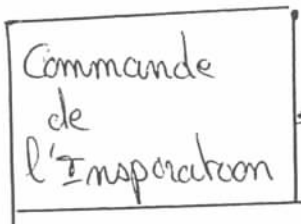 Commande
de
l'Inspiration